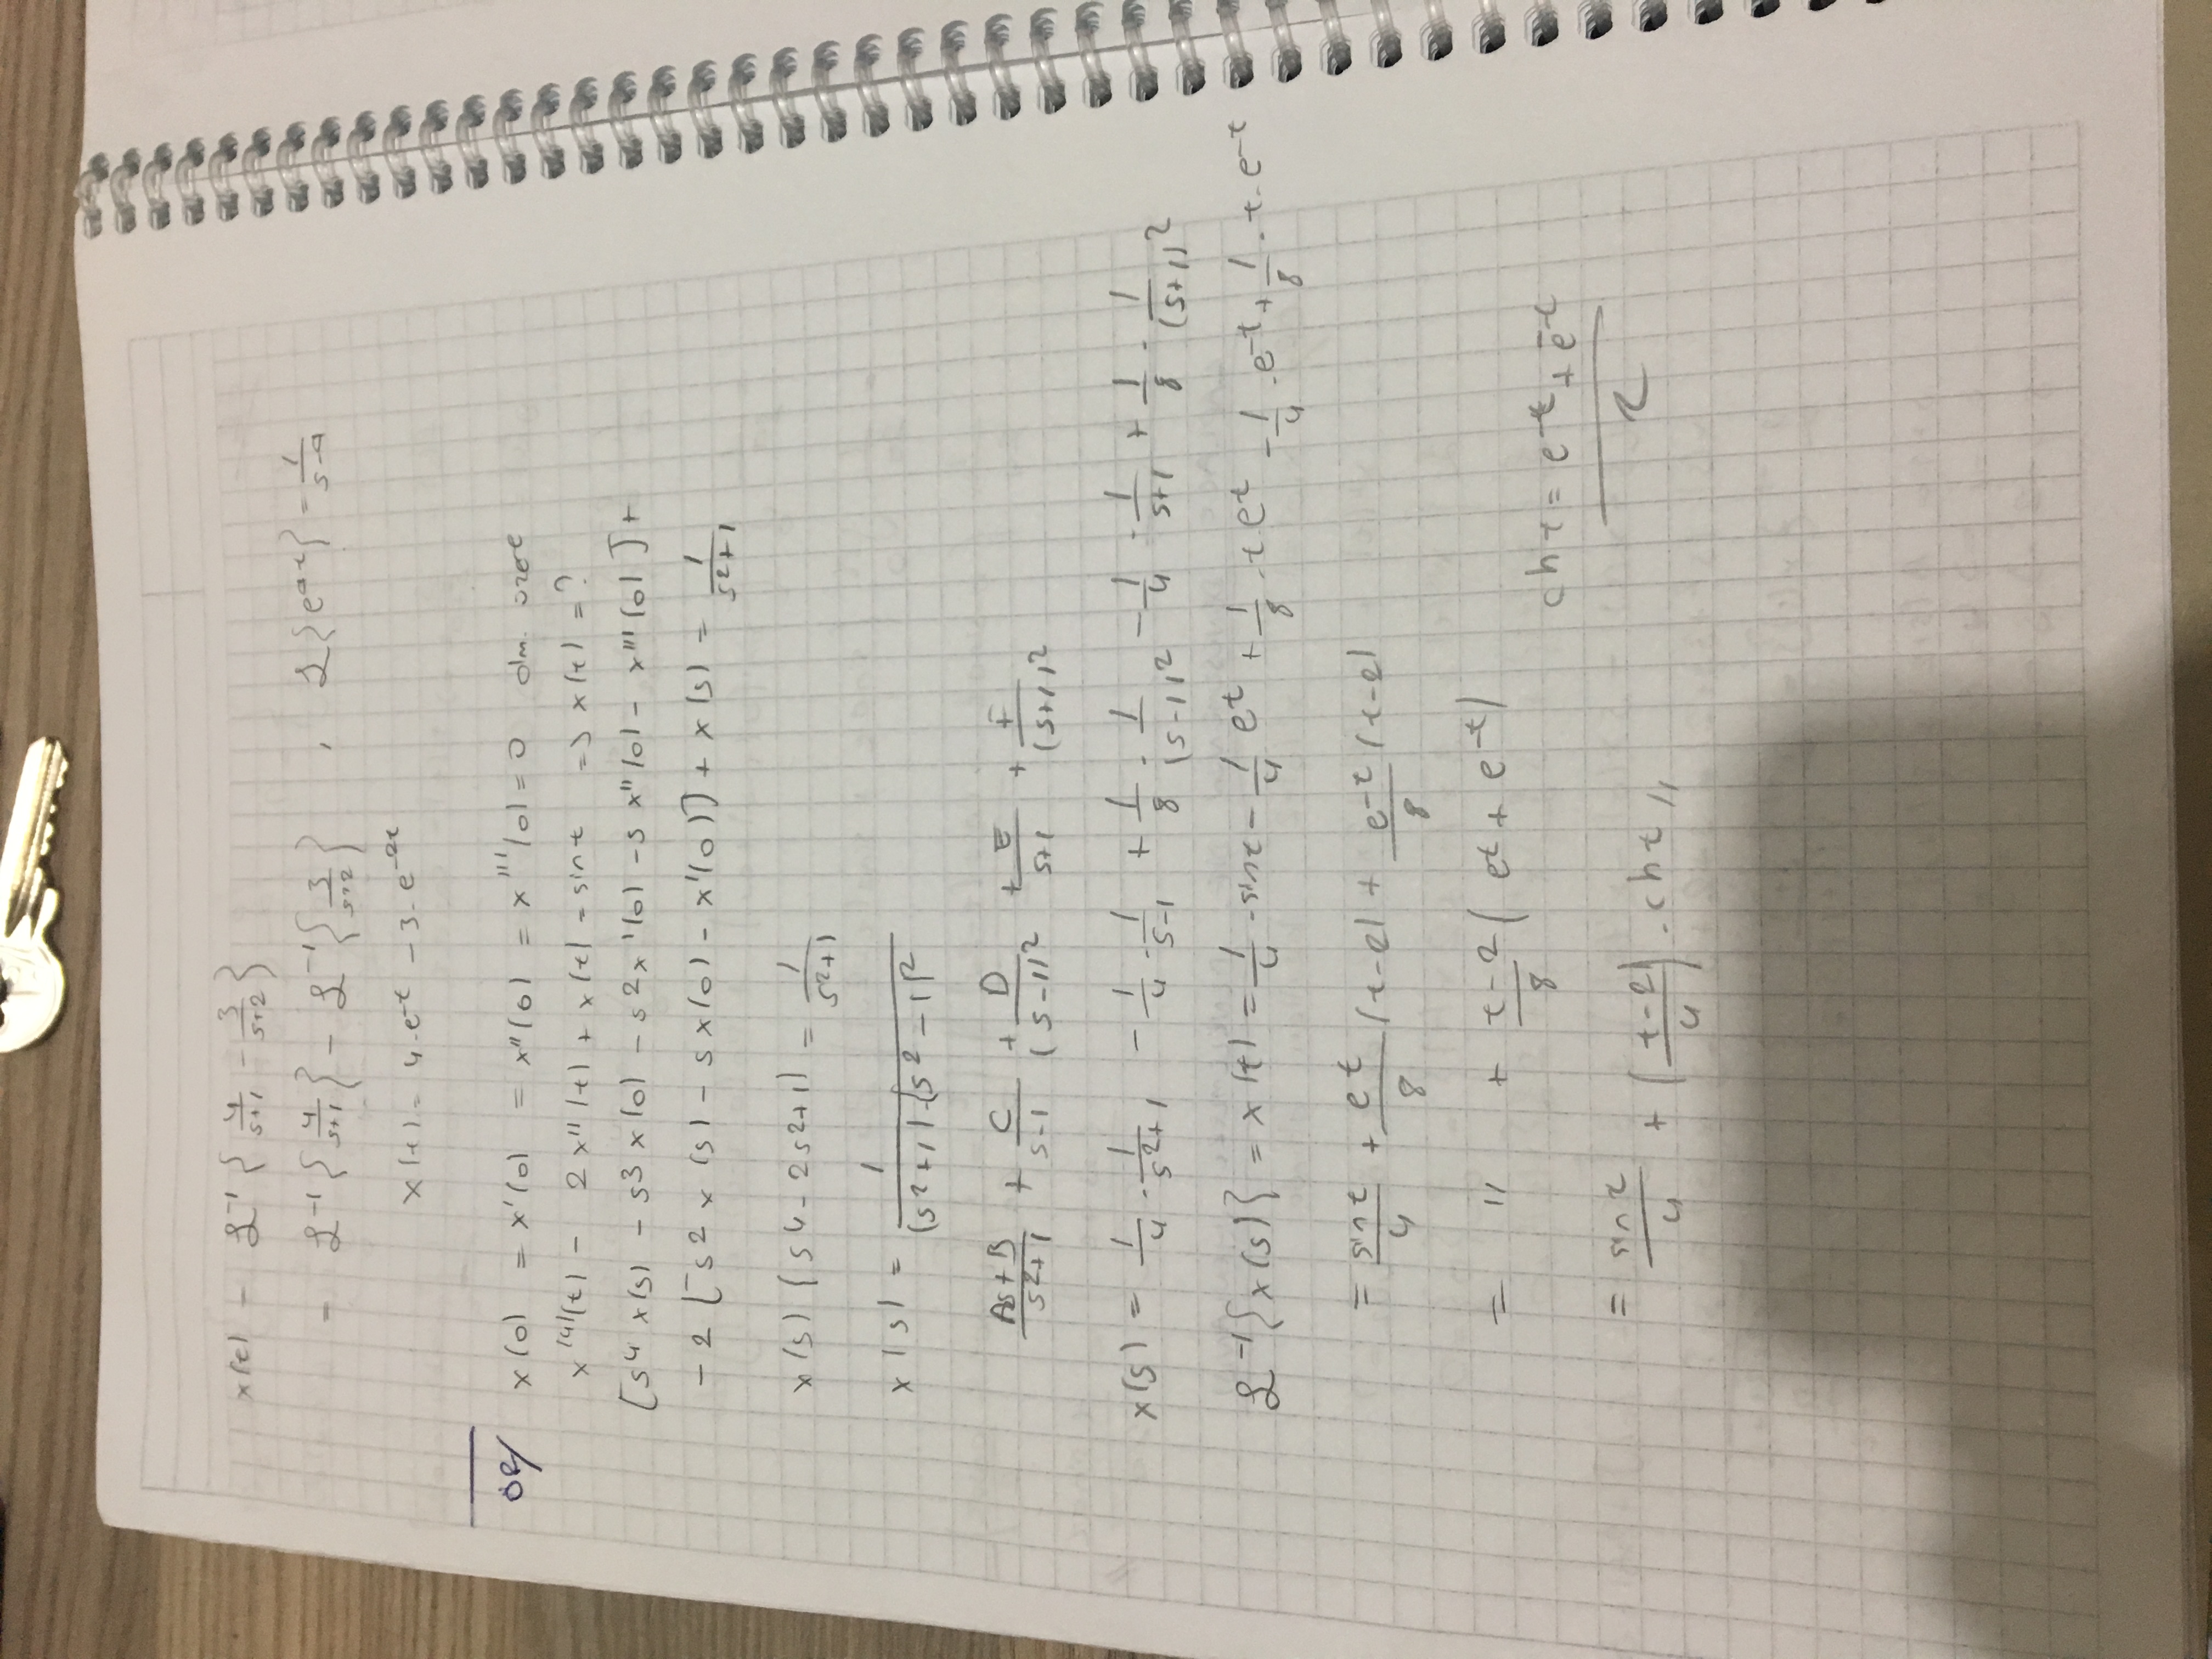 x(t) = ℒ⁻¹ { 4/(s+1) - 3/(s+2) }
= ℒ⁻¹ { 4/(s+1) } - ℒ⁻¹ { 3/(s+2) } , ℒ{e^(at)} = 1/(s-a)
x(t) = 4·e^(-t) - 3·e^(-2t)
ör/ x(0) = x'(0) = x''(0) = x'''(0) = 0 olm. üzere
x⁽⁴⁾(t) - 2x''(t) + x(t) = sin t => x(t) = ?
[s⁴ x(s) - s³ x(0) - s² x'(0) - s x''(0) - x'''(0)] +
-2 [s² x(s) - s x(0) - x'(0)] + x(s) = 1/(s²+1)
x(s) (s⁴ - 2s² + 1) = 1/(s²+1)
x(s) = 1/((s²+1)·(s²-1)²)
(As+B)/(s²+1) + C/(s-1) + D/(s-1)² + E/(s+1) + F/(s+1)²
x(s) = 1/4 · 1/(s²+1) - 1/4 · 1/(s-1) + 1/8 · 1/(s-1)² - 1/4 · 1/(s+1) + 1/8 · 1/(s+1)²
ℒ⁻¹{x(s)} = x(t) = 1/4 · sin t - 1/4 e^t + 1/8 · t e^t - 1/4 · e^(-t) + 1/8 · t · e^(-t)
= sin t/4 + e^t/8 (t-2) + e^(-t)/8 (t-2)
= '' + (t-2)/8 (e^t + e^(-t))
ch t = (e^(-t) + e^(-t))/2
= sin t/4 + ((t-2)/4) · ch t //